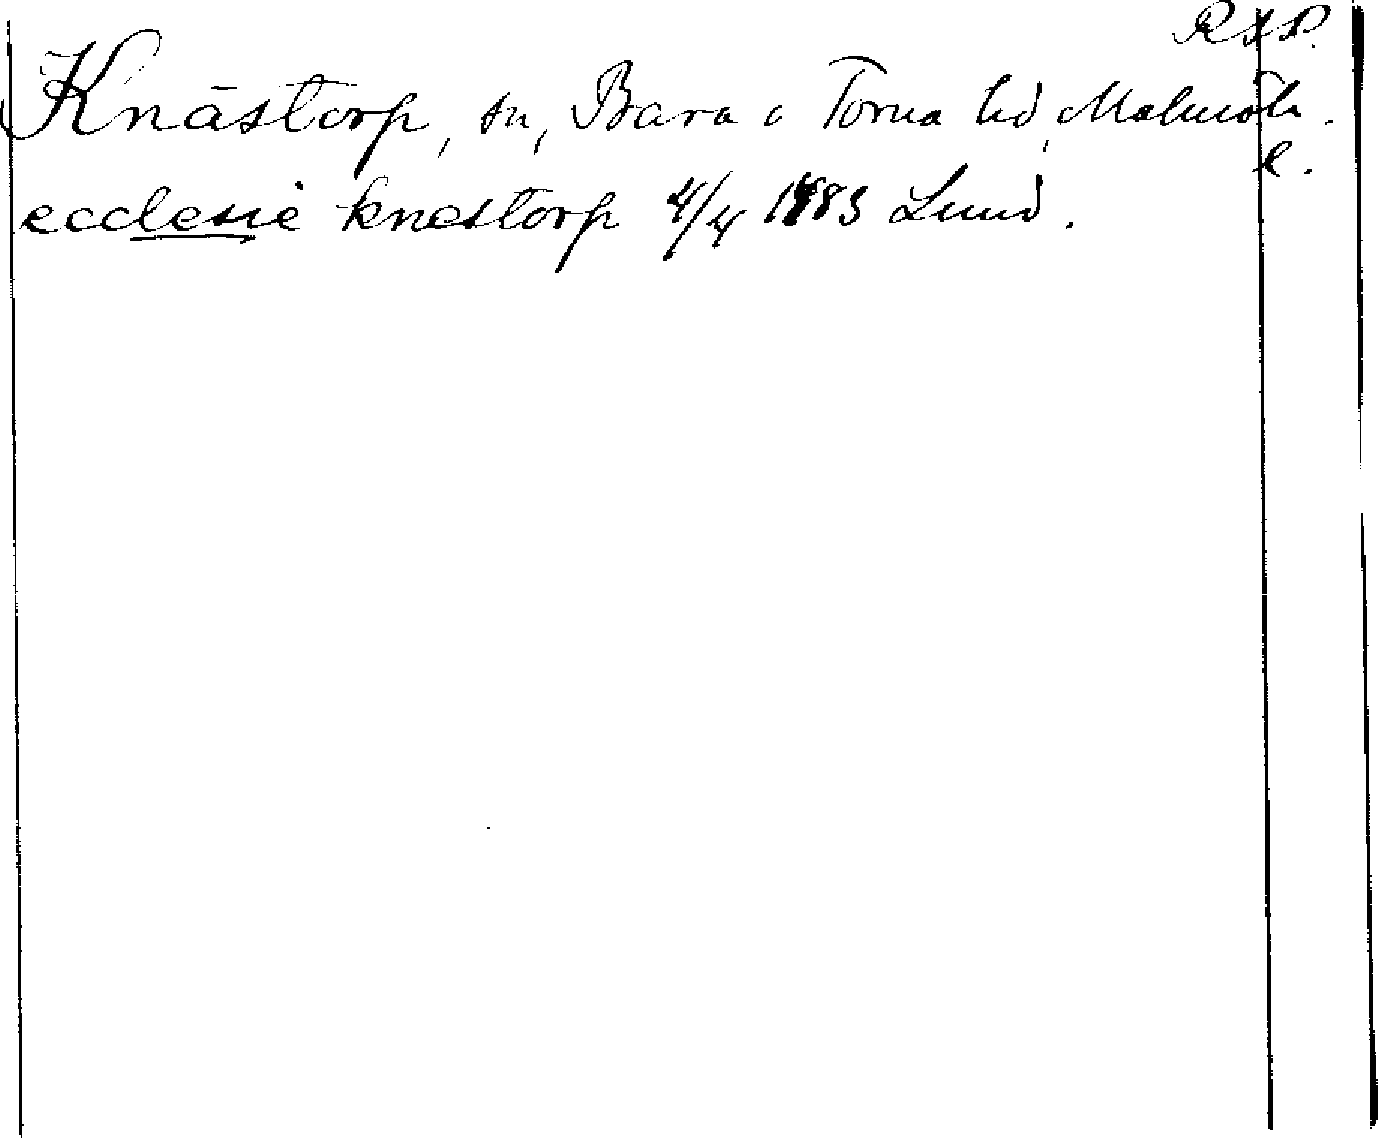 RAP.
Knästorp, sn, Bara o Torna hd, Malmöh.
l.
ecclesie knestorp 4/4 1483 Lund.